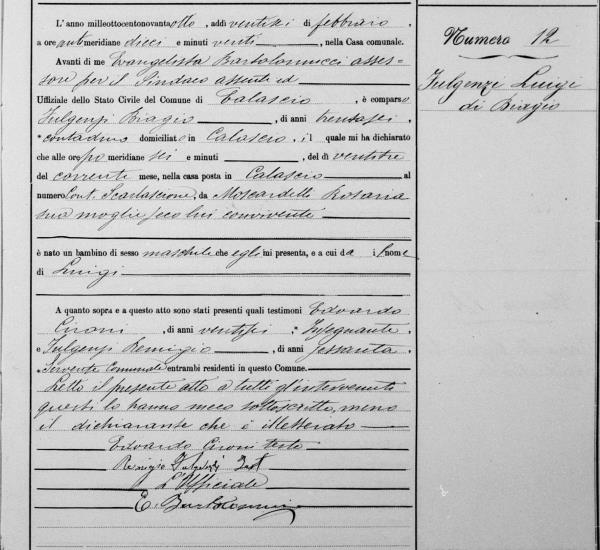 L'anno milleottocentonovantotto, addì ventisei di febbraio,
a ore antimeridiane dieci e minuti venti, nella Casa comunale.
Avanti di me Evangelista Bartolomucci asses-
sore per il Sindaco assente ed
Uffiziale dello Stato Civile del Comune di Calascio, è comparso
Fulgenzi Biagio, di anni trentasei,
contadino domiciliato in Calascio, il quale mi ha dichiarato
che alle ore pomeridiane sei e minuti, del dì ventitre
del corrente mese, nella casa posta in Calascio al
numero Cont. Scarlascione, da Moscardelli Rosaria
sua moglie seco lui convivente
è nato un bambino di sesso maschile che egli mi presenta, e a cui dà il nome
di Luigi
A quanto sopra e a questo atto sono stati presenti quali testimoni Edoardo
Cironi, di anni ventisei, Insegnante,
e Fulgenzi Remigio, di anni sessanta,
Servente Comunale, entrambi residenti in questo Comune.
Letto il presente atto a tutti gl'intervenuti
questi lo hanno meco sottoscritto, meno
il dichiarante che è illetterato
Edoardo Cironi teste
Remigio Fulgenzi Test
L'Ufficiale
E. Bartolomucci
Numero 12
Fulgenzi Luigi
di Biagio